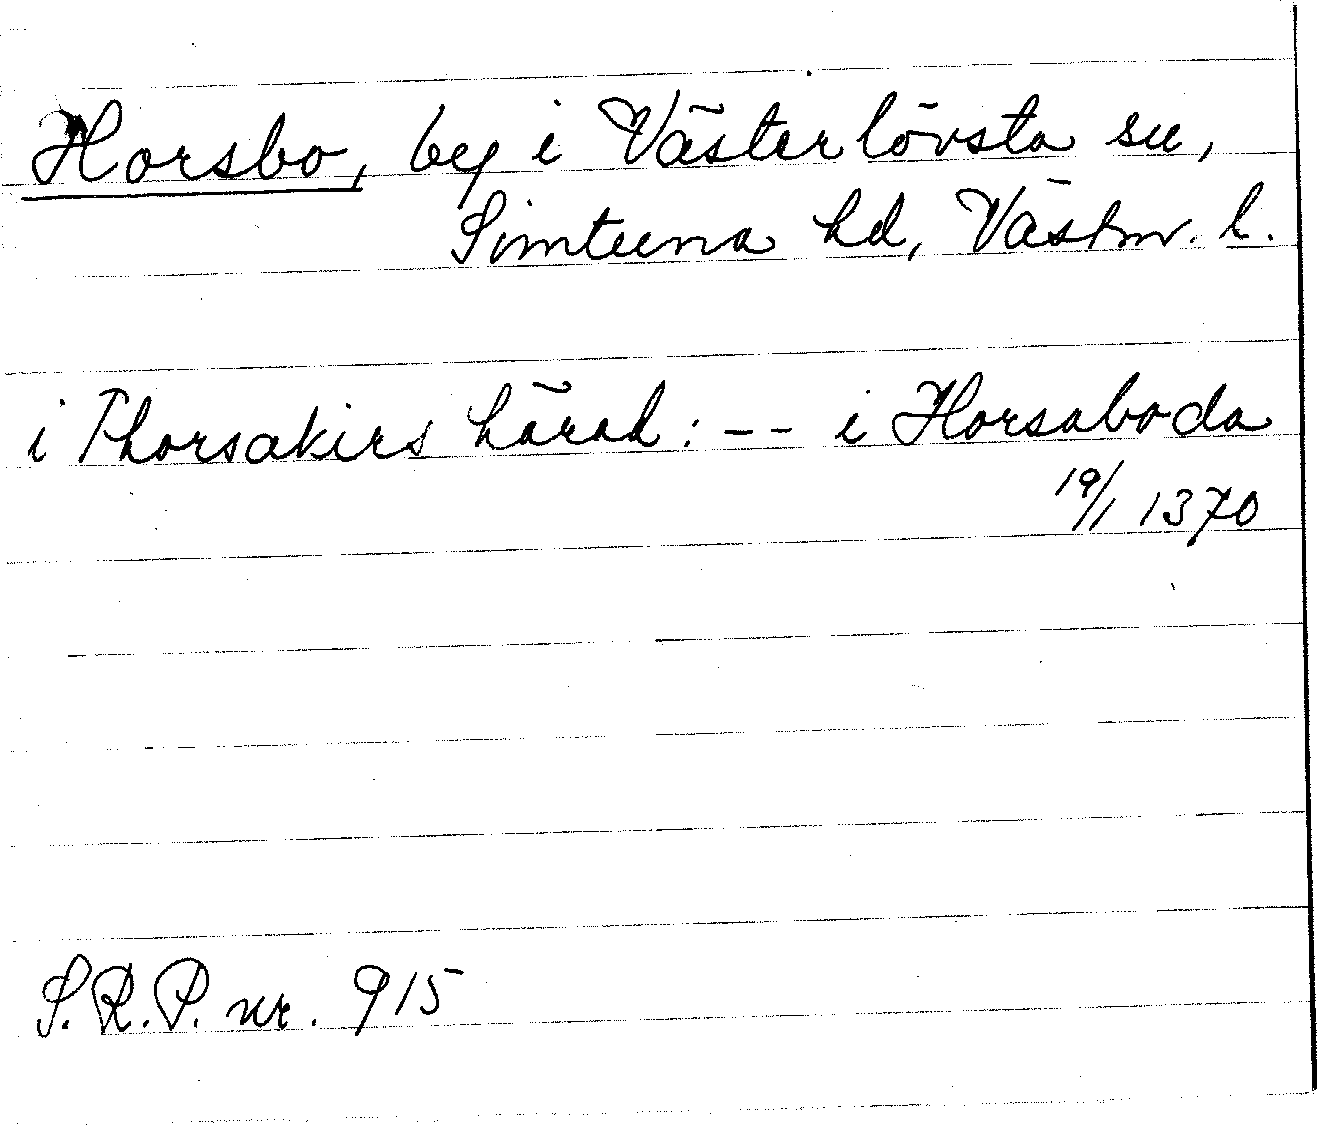 Horsbo, by i Västerlövsta sn,
Simtuna hd, Västm. l.
i Thorsakirs härad: -- i Horsaboda
19/1 1370
S.R.P. nr. 915